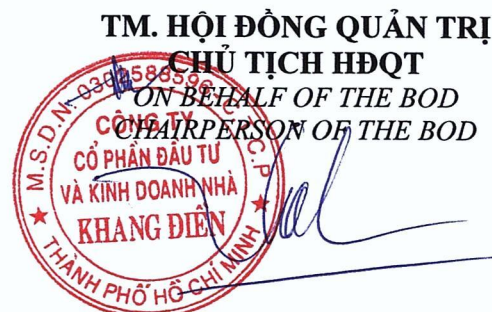 TM. HỘI ĐỒNG QUẢN TRỊ
CHỦ TỊCH HĐQT
ON BEHALF OF THE BOD
CHAIRPERSON OF THE BOD
M.S.D.N: C.T.C.P
CÔNG TY
CỔ PHẦN ĐẦU TƯ
VÀ KINH DOANH NHÀ
KHANG ĐIỀN
THÀNH PHỐ HỒ CHÍ MINH